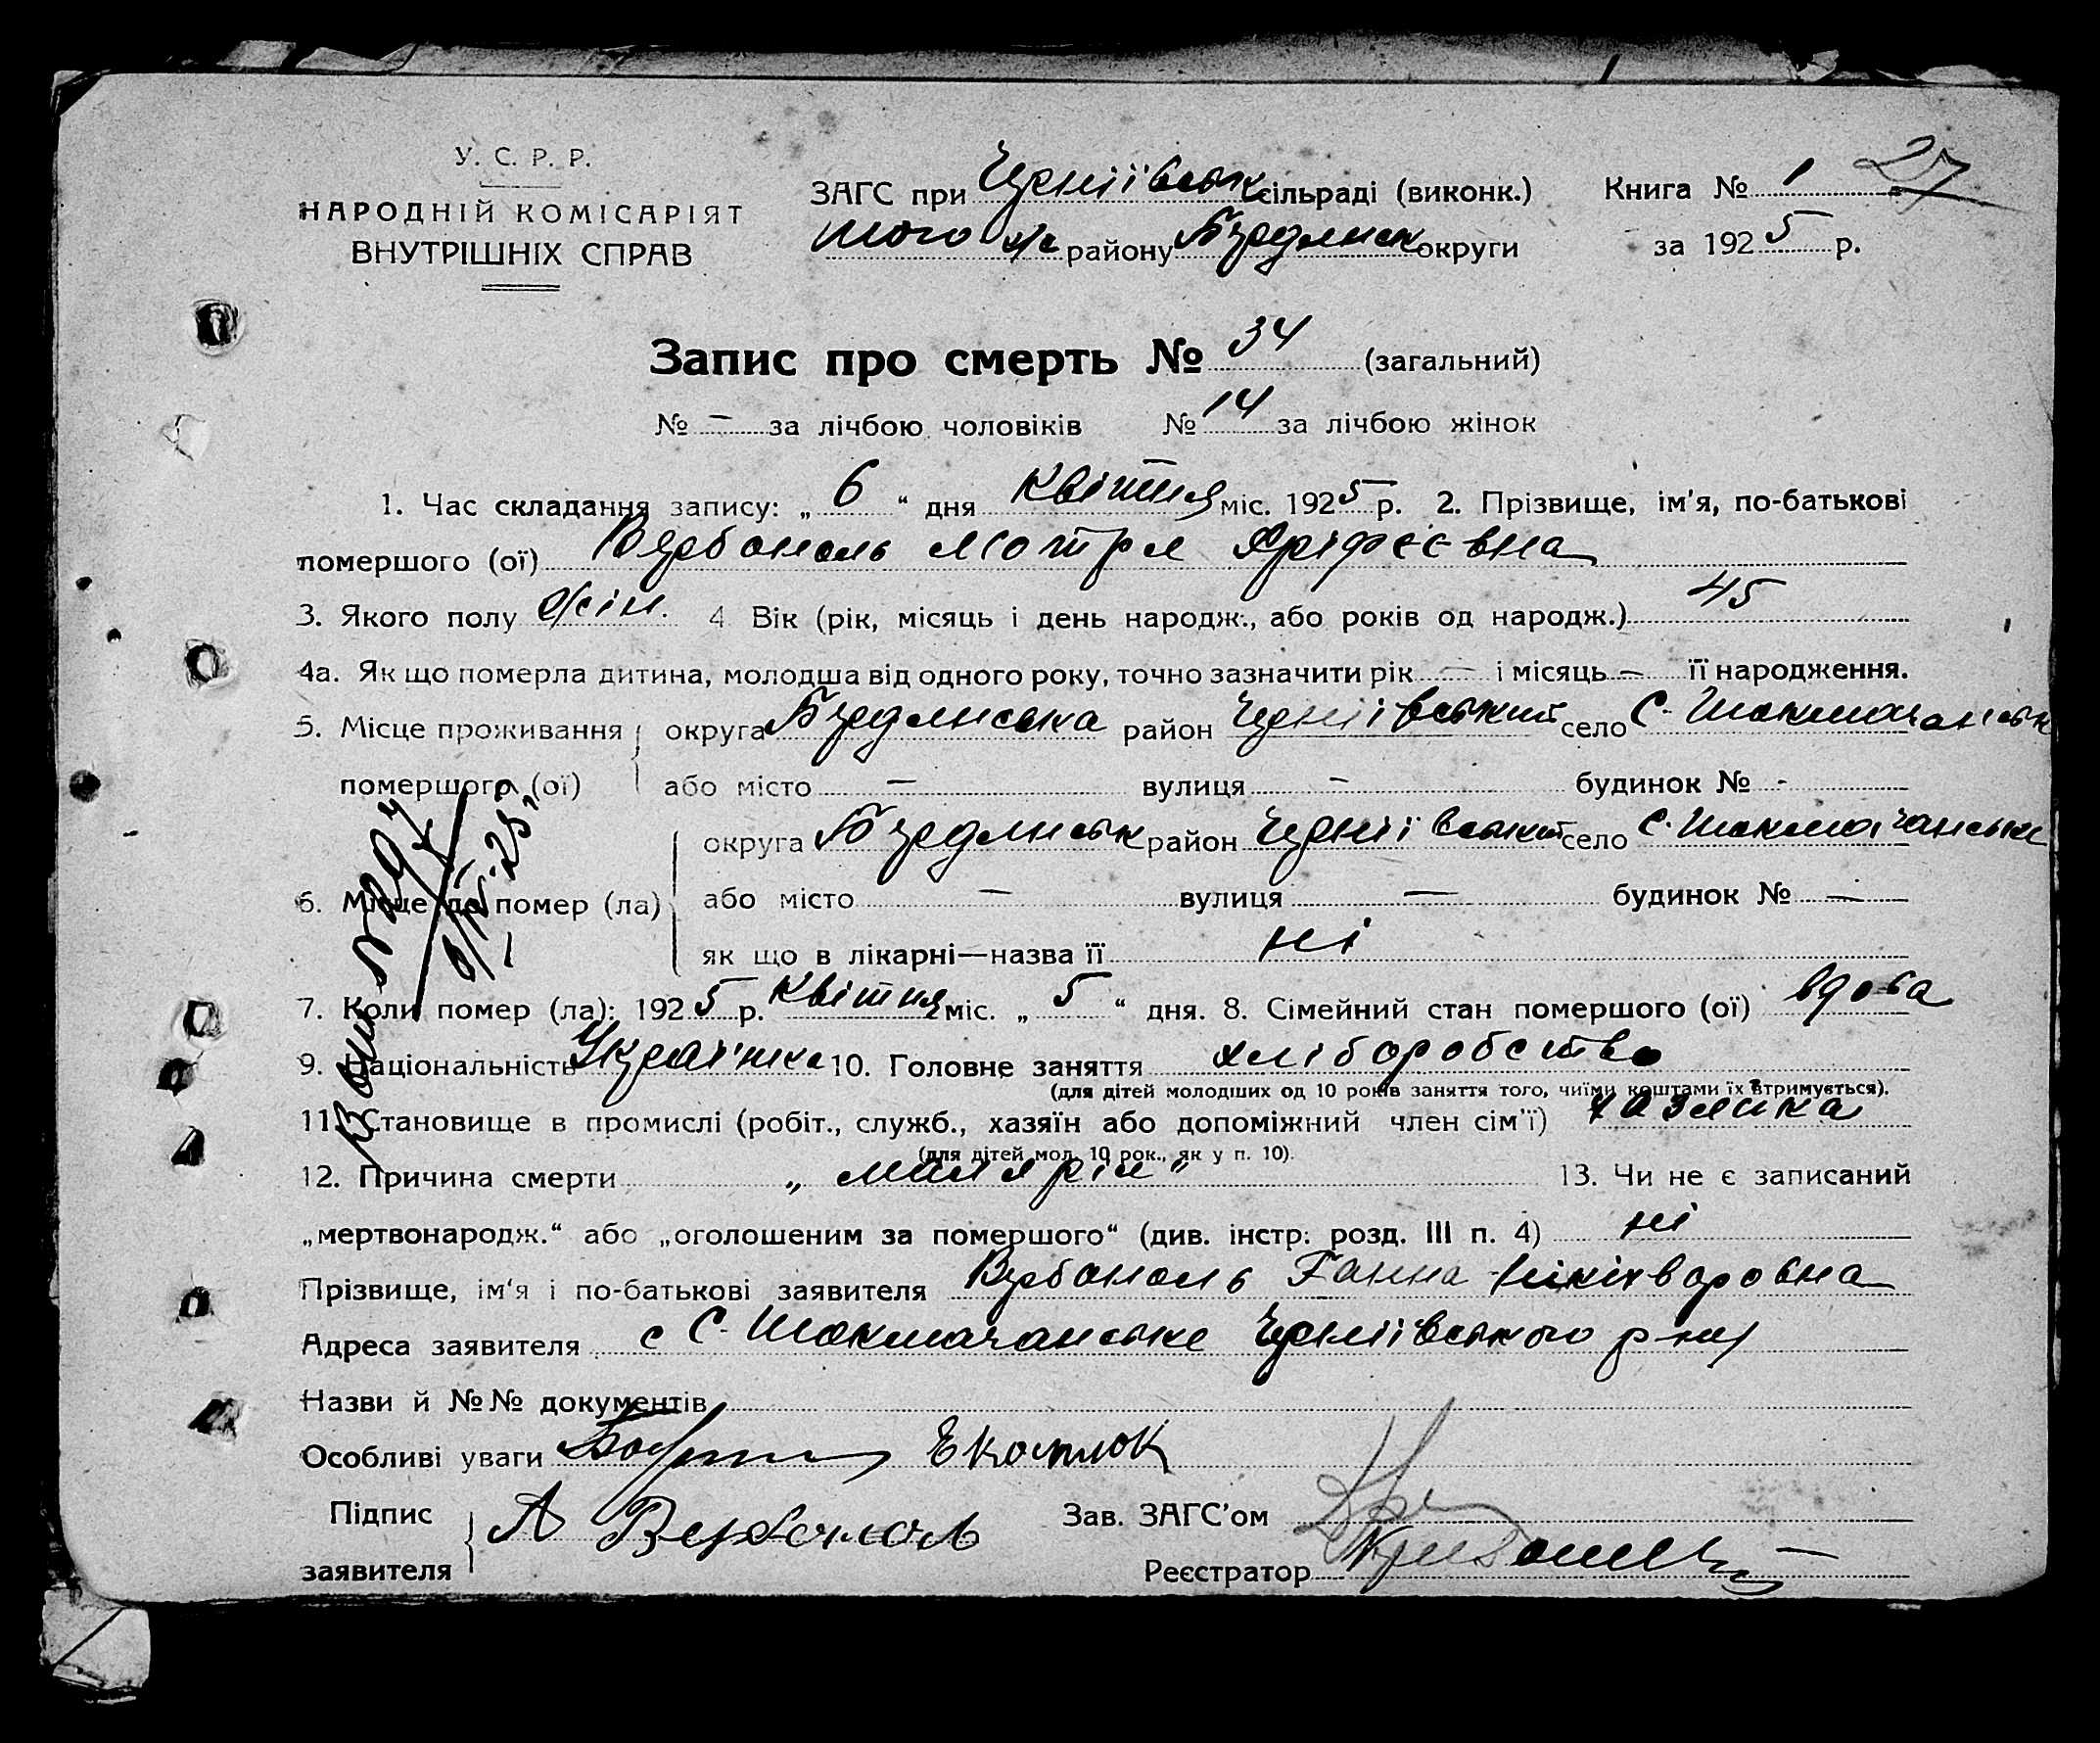 У. С. Р. Р.
НАРОДНІЙ КОМІСАРІЯТ
ВНУТРІШНІХ СПРАВ
ЗАГС при Черніївськ сільраді (виконк.)
того ж району Бердянськ округи
Книга № 1 27
за 1925 р.
Запис про смерть № 34 (загальний)
№ — за лічбою чоловіків № 14 за лічбою жінок
1. Час складання запису: „ 6 “ дня Квітня міс. 1925 р. 2. Прізвище, ім'я, по-батькові
помершого (ої) Вербоноль Мотря
3. Якого полу жін. 4 Вік (рік, місяць і день народж., або років од народж.) 45
4а. Як що померла дитина, молодша від одного року, точно зазначити рік — і місяць — її народження.
5. Місце проживання округа Бердянська район Черніївський село С.
помершого (ої) або місто — вулиця — будинок № -
6. Місце де помер (ла) округа Бердянськ район Черніївський село С.
або місто — вулиця — будинок № —
як що в лікарні—назва її ні
7. Коли помер (ла): 1925 р. Квітня міс. „ 5 “ дня. 8. Сімейний стан помершого (ої) вдова
9. Національність Украінка 10. Головне заняття хліборобство
(для дітей молодших од 10 років заняття того, чиїми коштами їх втримується).
11. Становище в промислі (робіт., служб., хазяїн або допоміжний член сім'ї) хазяйка
(для дітей мол. 10 рок., як у п. 10).
12. Причина смерти „ малярія " 13. Чи не є записаний
„мертвонародж.“ або „оголошеним за помершого“ (див. інстр. розд. III п. 4) ні
Прізвище, ім'я і по-батькові заявителя Вербоноль Ганна
Адреса заявителя с С. Черніївського р-ну
Назви й №№ документів
Особливі уваги
Підпис
заявителя А Вербоноль
Зав. ЗАГС'ом
Реєстратор